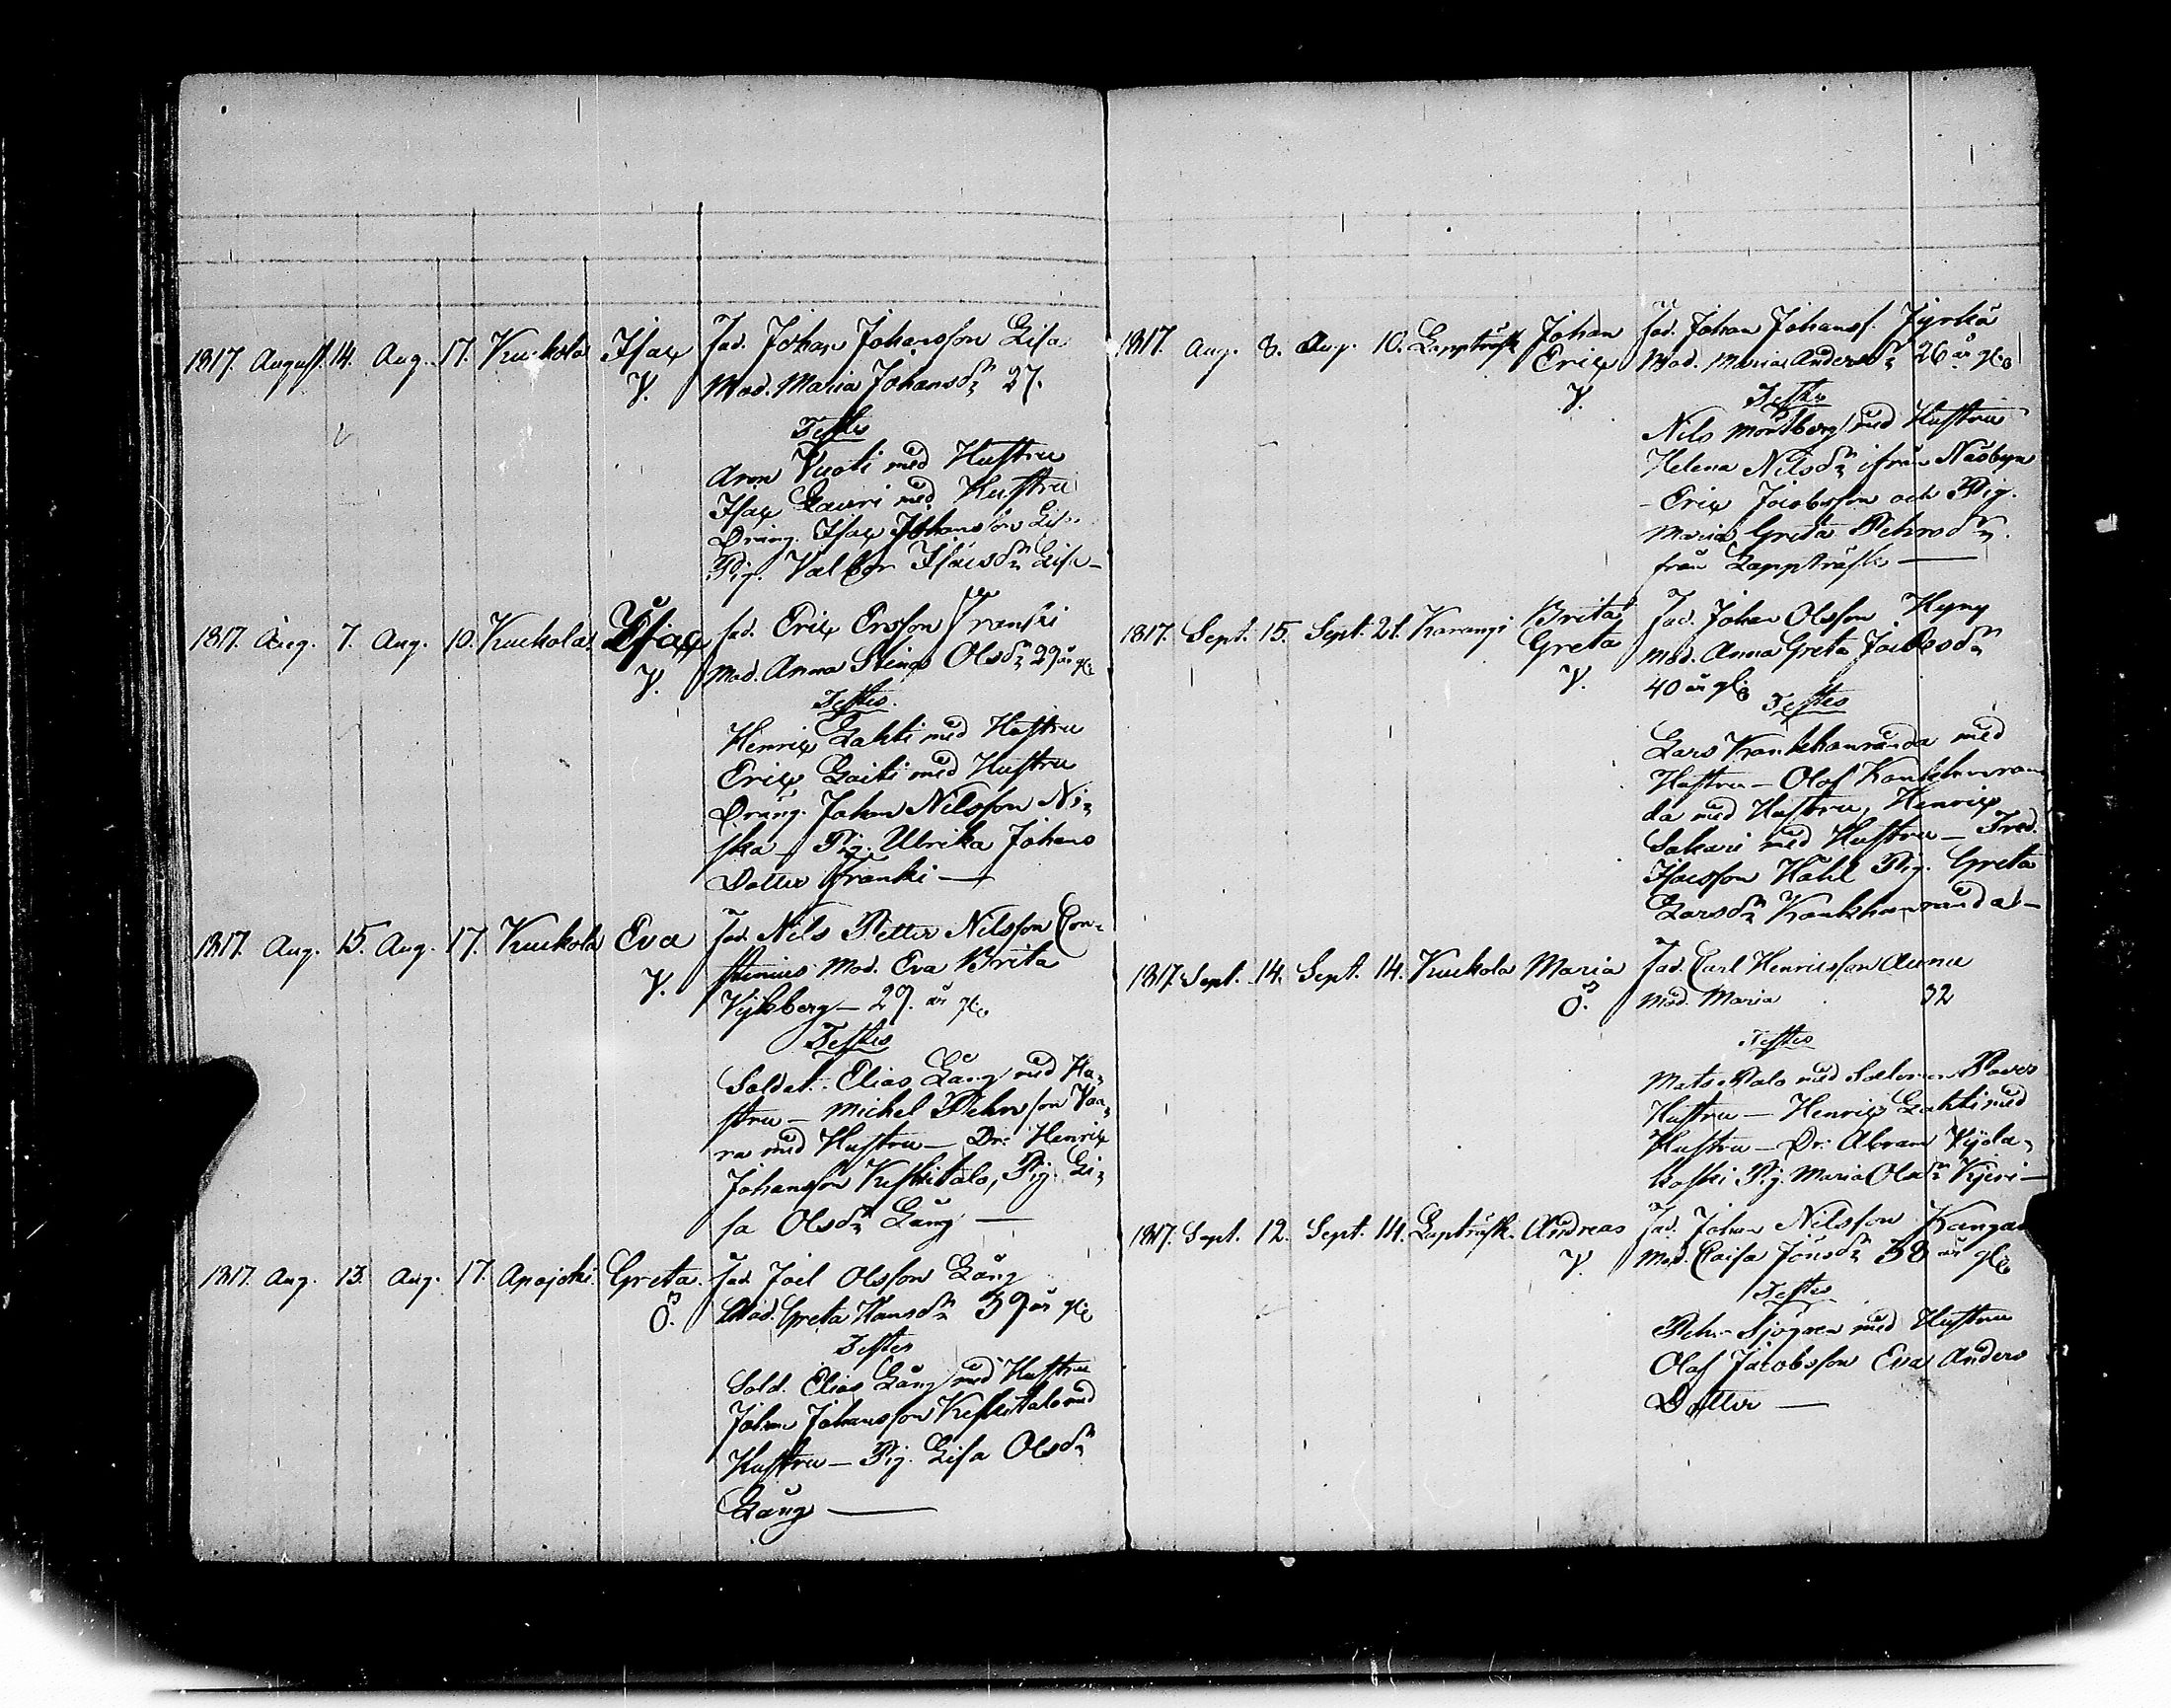 1817. August. 14. Aug. 17. Kuckola Isac Fad. Johan Johansson Lisa
V. Mod. Maria Johansdr 27.
Testes
Aron Vuoti med Hustru
Isac Lauri med Hustru
Dräng. Isac Johansson Lisa
Pig. Valbor Isacsdr Lisa –
1817. Aug. 7. Aug. 10. Kuckola. Isac Fad. Eric Ersson Franki
V. Mod. Anna Stina Olsdr 29 år gl.
Testes.
Henric Lahti med Hustru
Eric Laiti med Hustru
Dräng. Johan Nilsson Ni-
ska – Pig. Ulrika Johans
Dotter Franki —
1817. Aug. 15. Aug. 17. Kuckola Eva Fad. Nils Petter Nilsson Con-
V. stenius Mod. Eva Brita
Vijkberg – 29. år gl.
Testes
Soldat. Elias Lång med Hu-
stru – Michel Pehrsson Vaa-
ra med Hustru – Dr: Henric
Johansson Keskitalo, Pig. Li-
sa Olsdr Lång —
1817. Aug. 13. Aug. 17. Apajoki. Greta. Fad. Joel Olsson Lång
Ö. Mod. Greta Hansdr 39 år gl.
Testes
Sold. Elias Lång med Hustru
Johan Johansson Keskitalo med
Hustru – Pig. Lisa Olsdr
Lång —
1817. Aug. 8. Aug. 10. Lappträsk Johan Fad. Johan Johanss. Jyrkä
Eric Mod. Maria Andersdr 26 år gl.
V. Testes
Nils Mortberg med Hustru
Helena Nilsdr ifrån Näsbyn
– Eric Jacobsson och Pig.
Maria Greta Pehrsdr.
från Lappträsk —
1817. Sept. 15. Sept. 21. Karungi Brita Fad. Johan Olsson Hyny
Greta Mod. Anna Greta Jacobsdr
V. 40 år gl. Testes
Lars Kankhanranda med
Hustru – Olof Kankhanran-
da med Hustru, Henric
Sakari med Hustru – Fred.
Isacsson Hähl Pig. Greta
Larsdr Kankhanranda –
1817. Sept. 14. Sept. 14. Kuckola Maria Fad. Carl Henricsson Aunu
Ö. Mod. Maria 32
Testes
Mats Palo med Hustru –
Henric Lahti med
Hustru – Dr: Abram Vyda-
koski Pig. Maria Olsdr Kyeri –
1817. Sept. 12. Sept. 14. Lapträsk. Andreas Fad. Johan Nilsson Kangas
V. Mod. Caisa Jönsdr 38 år gl.
Testes
Pehr Sjögren med Hustru
Olof Jacobsson Eva Anders
Dotter —